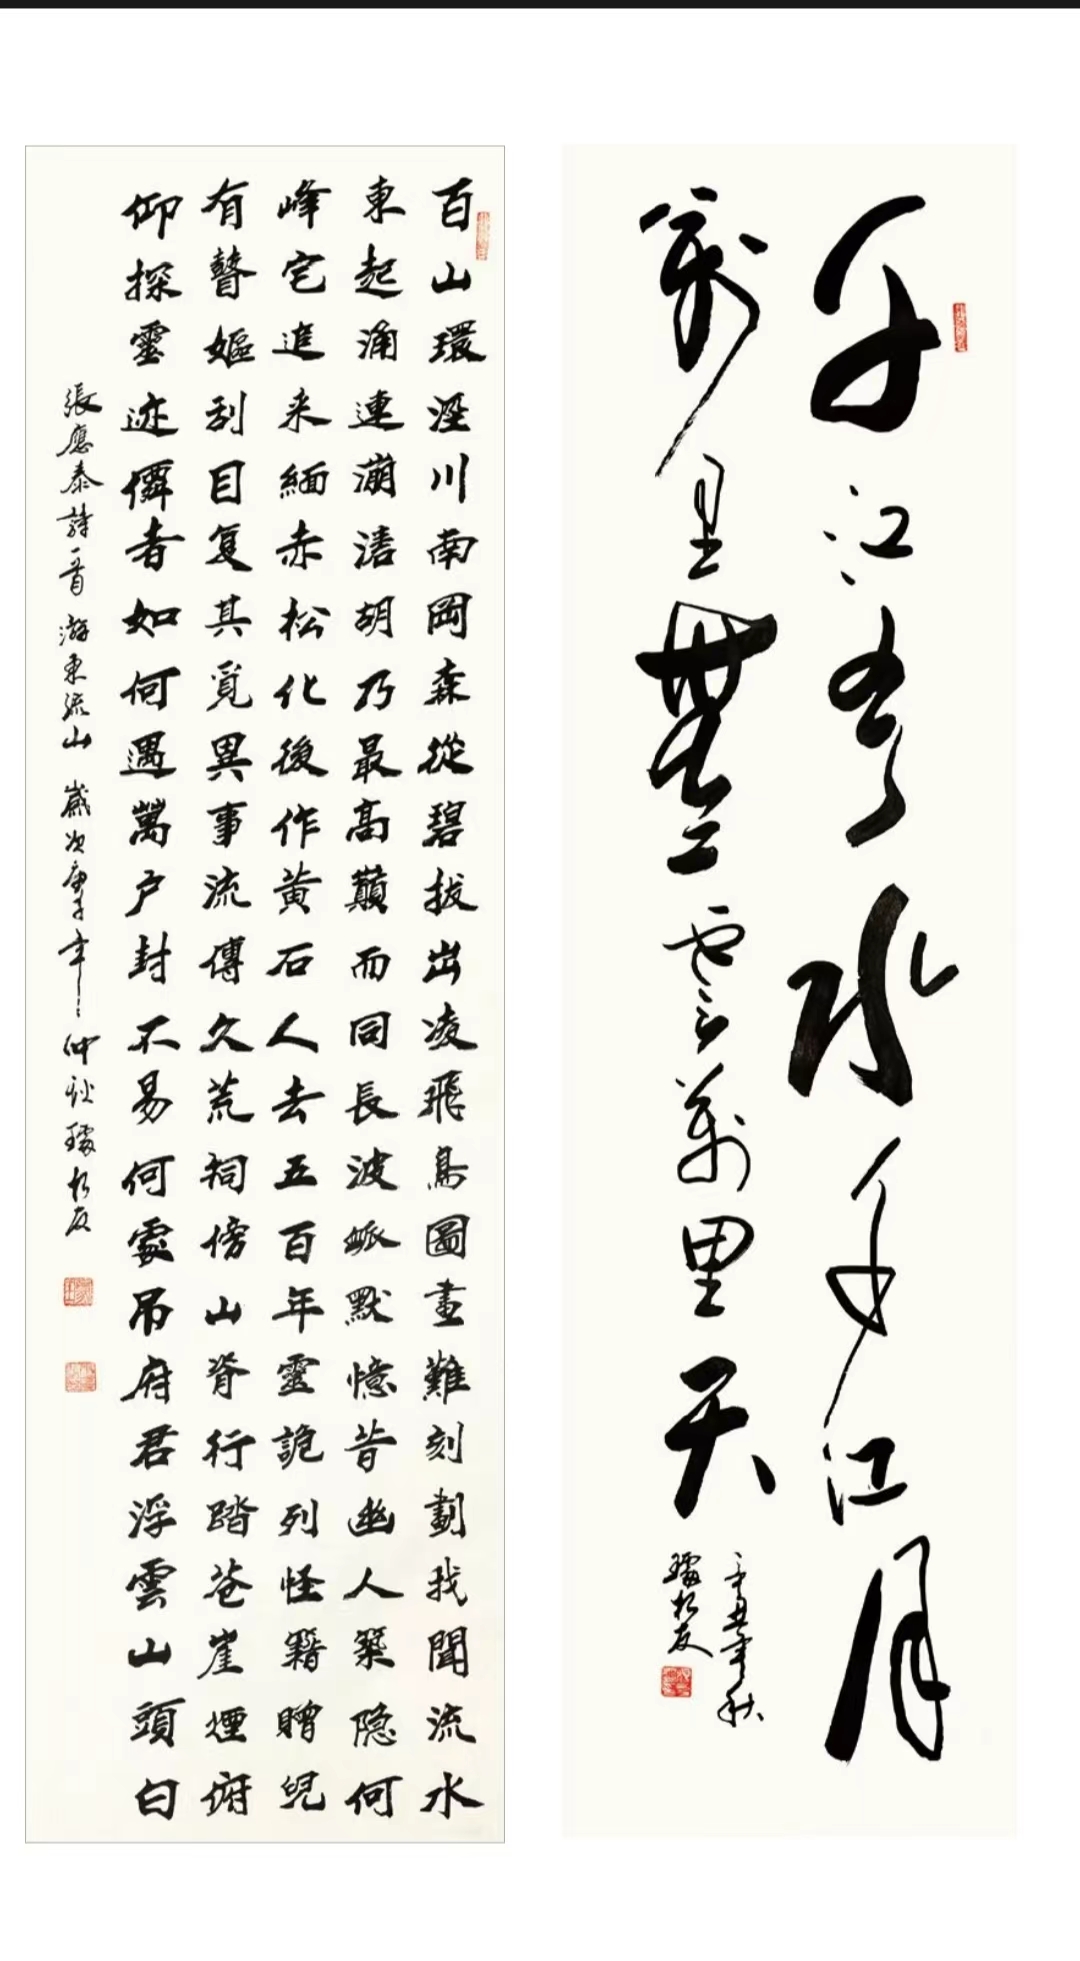 千江有水千江月
萬里無雲萬里天
辛丑年秋
松友
百山環涇川南岡森從碧拔出凌飛鳥圖畫難刻劃我聞流水
東起涌連漰湱胡乃最高巔而同長波派默憶昔幽人築隐何
峰宅追来緬赤松化後作黄石人去五百年靈詭列怪籍贈兒
有瞽嫗刮目复其覓異事流傳久荒祠傍山脊行踏苍崖煙俯
仰探靈迹僊者如何遇萬户封不易何處吊府君浮雲山頭白
張應泰詩一首 游東流山 歲次庚子年仲秋 松友